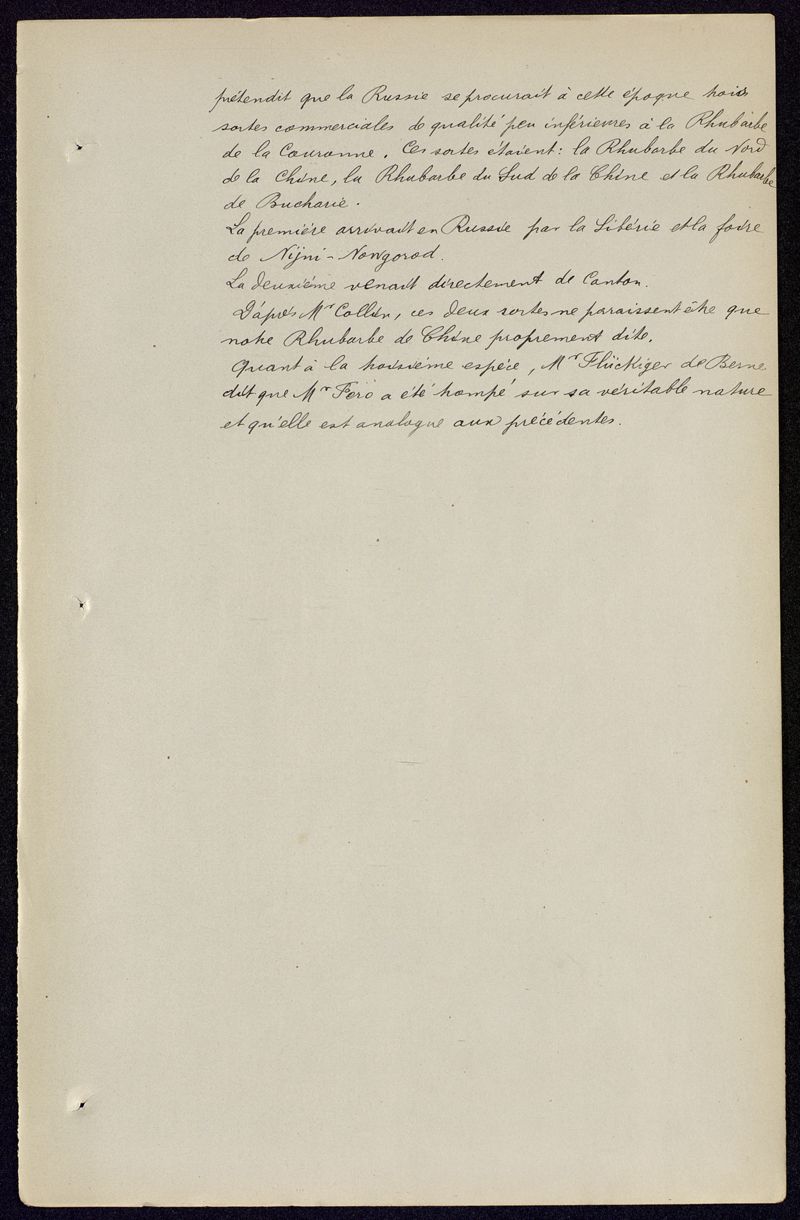 prétendit que la Russie se procurait à cette époque trois
sortes commerciales de qualité peu inférieures à la Rhubarbe
de la Couronne. Ces sortes étaient: la Rhubarbe du Nord
de la Chine, la Rhubarbe du Sud de la Chine et la Rhubarbe
de Bucharie.
La première arrivait en Russie par la Sibérie et la foire
de Nijni-Nowgorod.
La deuxième venait directement de Canton.
D'après Mr Collin, ces deux sortes ne paraissent être que
notre Rhubarbe de Chine proprement dite.
Quant à la troisième espèce, Mr Flückiger de Berne
dit que Mr Fero a été trompé sur sa véritable nature
et qu'elle est analogue aux précédentes.